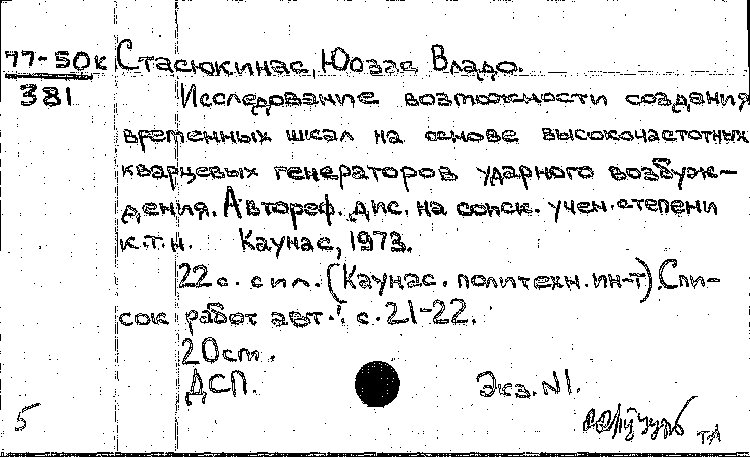 77-50к Стасюкинас, Юозас Владо.
381 Исследование возможности создания
временных шкал на основе высокочастотных
кварцевых генераторов ударного возбуж-
дения. Автореф. дис. на соиск. учен. степени
к.т.н. Каунас, 1973.
22 с. с ил. (Каунас. политехн. ин-т). Спи-
сок работ авт.: с. 21-22.
20 см.
ДСП. Экз. N1.
5
ТЛ